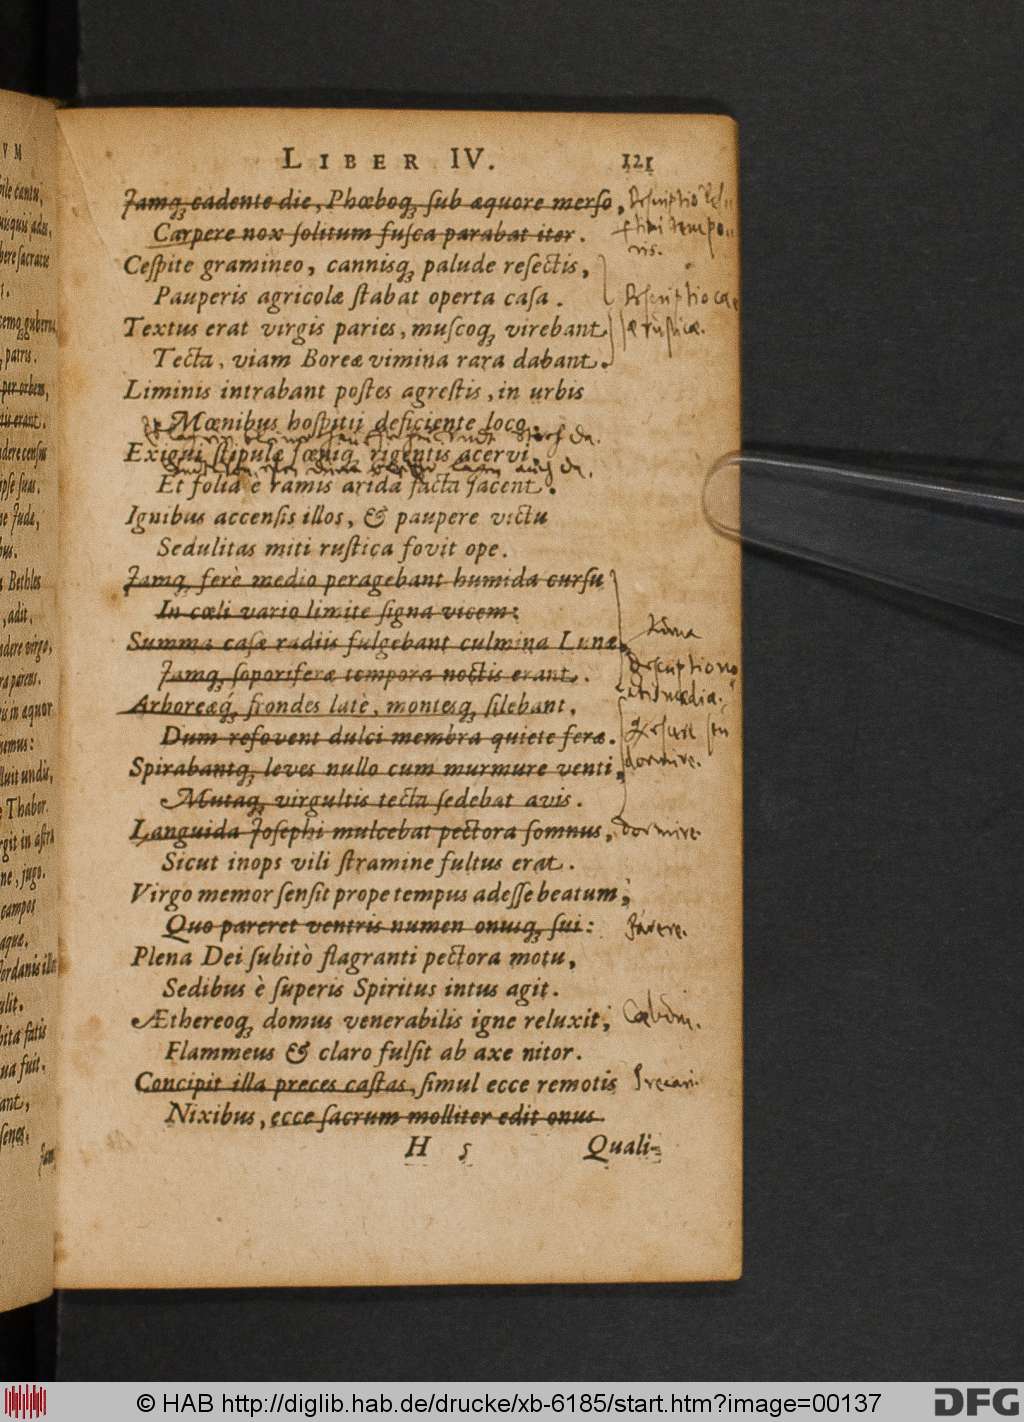 LIBER IV. 121
Jamq́; cadente die, Phœboq́; ſub æquore merſo,
Carpere nox ſolitum fuſca parabat iter.
Ceſpite gramineo, cannisq́; palude reſectis,
Pauperis agricolæ ſtabat operta caſa.
Textus erat virgis paries, muſcoq́; virebant
Tecta, viam Boreæ vimina rara dabant.
Liminis intrabant poſtes agreſtis, in urbis
Mœnibus hoſpitii deficiente loco.
Exigui ſtipulæ fœniq́; rigentis acervi,
Et folia è ramis arida facta jacent.
Ignibus accenſis illos, & paupere victu
Sedulitas miti ruſtica fovit ope.
Jamq́; ferè medio peragebant humida curſu
In cœli vario limite ſigna vicem:
Summa caſæ radiis fulgebant culmina Lunæ,
Jamq́; ſoporiferæ tempora noctis erant.
Arboreæq́; frondes latè, montesq́; ſilebant,
Dum refovent dulci membra quiete feræ.
Spirabantq́; leves nullo cum murmure venti,
Mutaq́; virgultis tecta ſedebat avis.
Languida Joſephi mulcebat pectora ſomnus,
Sicut inops vili ſtramine fultus erat.
Virgo memor ſenſit prope tempus adeſſe beatum,
Quo pareret ventris numen onusq́; ſui:
Plena Dei ſubitò flagranti pectora motu,
Sedibus è ſuperis Spiritus intus agit.
Æthereoq́; domus venerabilis igne reluxit,
Flammeus & claro fulſit ab axe nitor.
Concipit illa preces caſtas, ſimul ecce remotis
Nixibus, ecce ſacrum molliter edit onus
H 5 Quali-
Deſcriptio
tempo
ris.
Deſcriptio ca
ſæ ruſticæ.
Luna
deſcriptio
dormire.
dormire
Parere.
Precari
© HAB http://diglib.hab.de/drucke/xb-6185/start.htm?image=00137
DFG